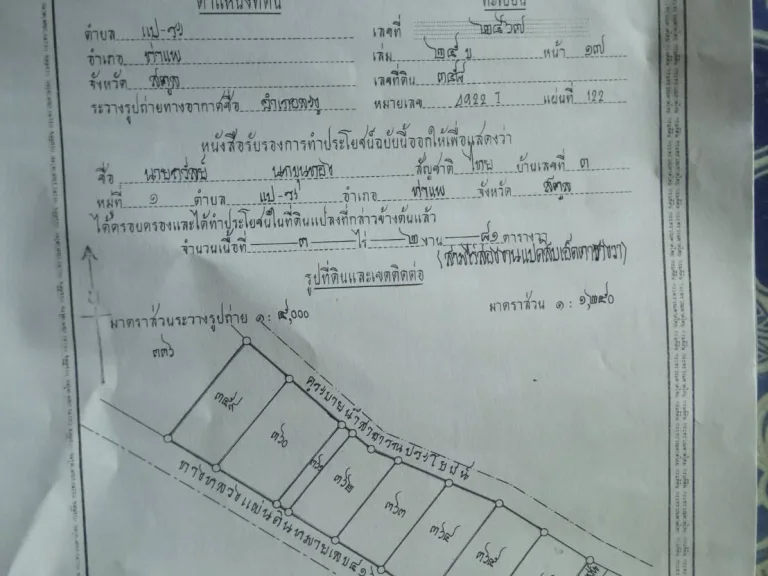 ตำแหน่งที่ดิน ทะเบียน
ตำบล แป-ระ เลขที่ ๒๕๖๗
อำเภอ ท่าแพ เล่ม ๒๕ ข หน้า ๑๗
จังหวัด สตูล เลขที่ดิน ๓๕๘
ระวางรูปถ่ายทางอากาศชื่อ อำเภอละงู หมายเลข 4922 I แผ่นที่ 122
หนังสือรับรองการทำประโยชน์ฉบับนี้ออกให้เพื่อแสดงว่า
ชื่อ สัญชาติ ไทย บ้านเลขที่ ๓
หมู่ที่ ๑ ตำบล แป-ระ อำเภอ ท่าแพ จังหวัด สตูล
ได้ครอบครองและได้ทำประโยชน์ในที่ดินแปลงที่กล่าวข้างต้นแล้ว
จำนวนเนื้อที่ ๓ ไร่ ๒ งาน ๘๑ ตารางวา
(สามไร่สองงานแปดสิบเอ็ดตารางวา)
รูปที่ดินและเขตติดต่อ
มาตราส่วนระวางรูปถ่าย ๑ : ๕,๐๐๐ มาตราส่วน ๑ : ๑,๒๕๐
๓๓๖
๓๕๙
๓๖๐
๓๖๑
๓๖๒
๓๖๓
๓๖๔
๓๖๕
คูระบายน้ำสาธารณประโยชน์
ทางหลวงแผ่นดินหมายเลข